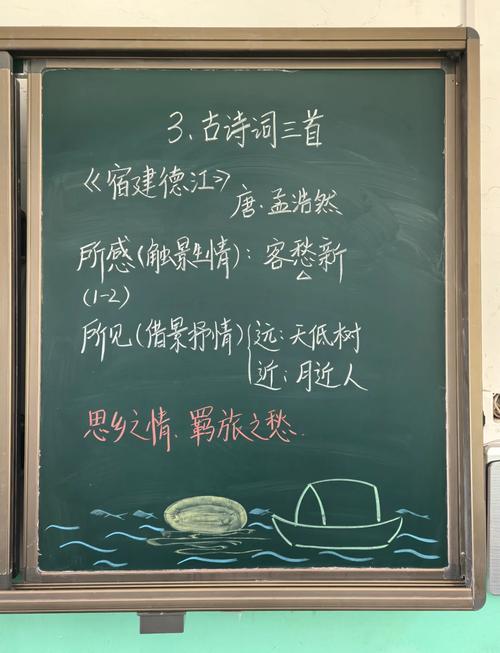 3、古诗词三首
《宿建德江》
唐·孟浩然
所感(触景生情):客愁新
(1-2)
所见(借景抒情){远:天低树
近:月近人
思乡之情、羁旅之愁.